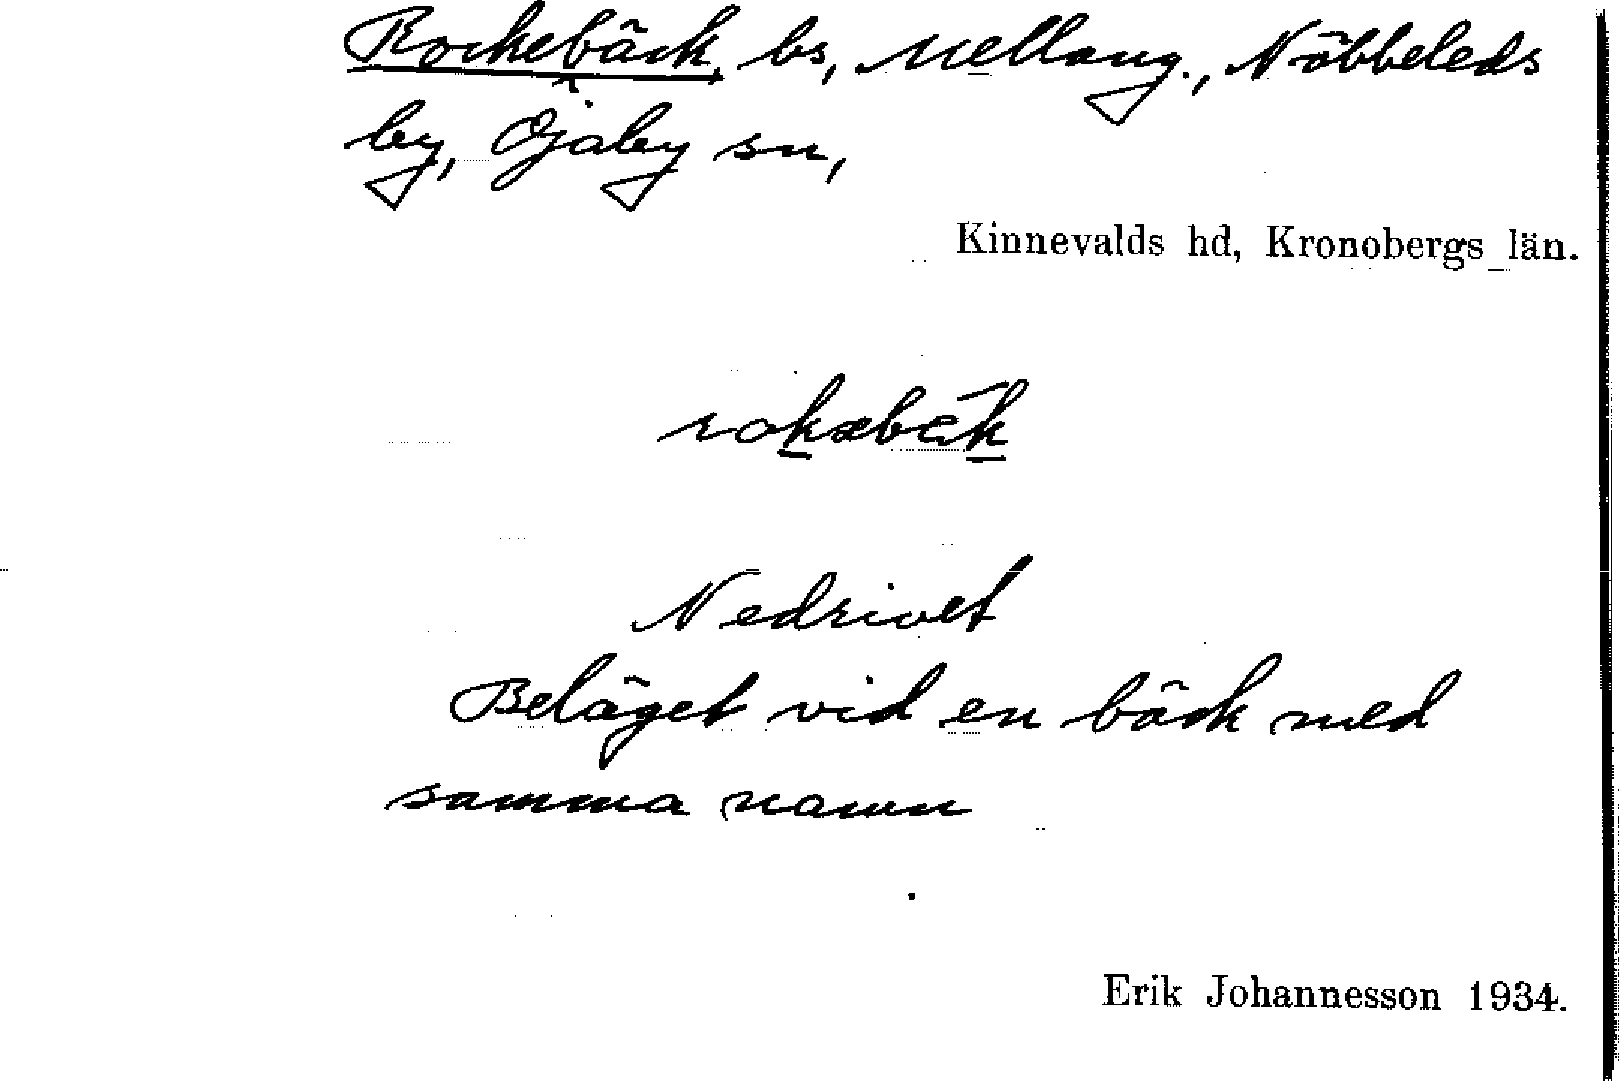 Rockebäck, bs, Mellang., Nöbbeleds
by, Öjaby sn,
Kinnevalds hd, Kronobergs län.
rokæbæk
Nedrivet
Beläget vid en bäck med
samma namn
Erik Johannesson 1934.